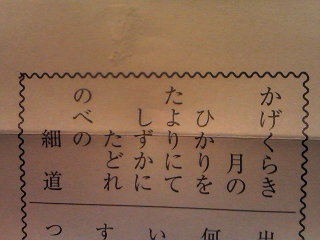 かげくらき
月の
ひかりを
たよりにて
しずかに
たどれ
のべの
細道
出
何
い
す
つ